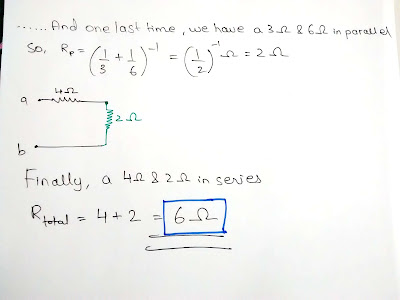 ...... And one last time, we have a 3Ω & 6Ω in parallel
So, Rp = (1/3 + 1/6)^-1 = (1/2)^-1 Ω = 2Ω
4Ω
a
2Ω
b
Finally, a 4Ω & 2Ω in series
Rtotal = 4 + 2 = 6Ω